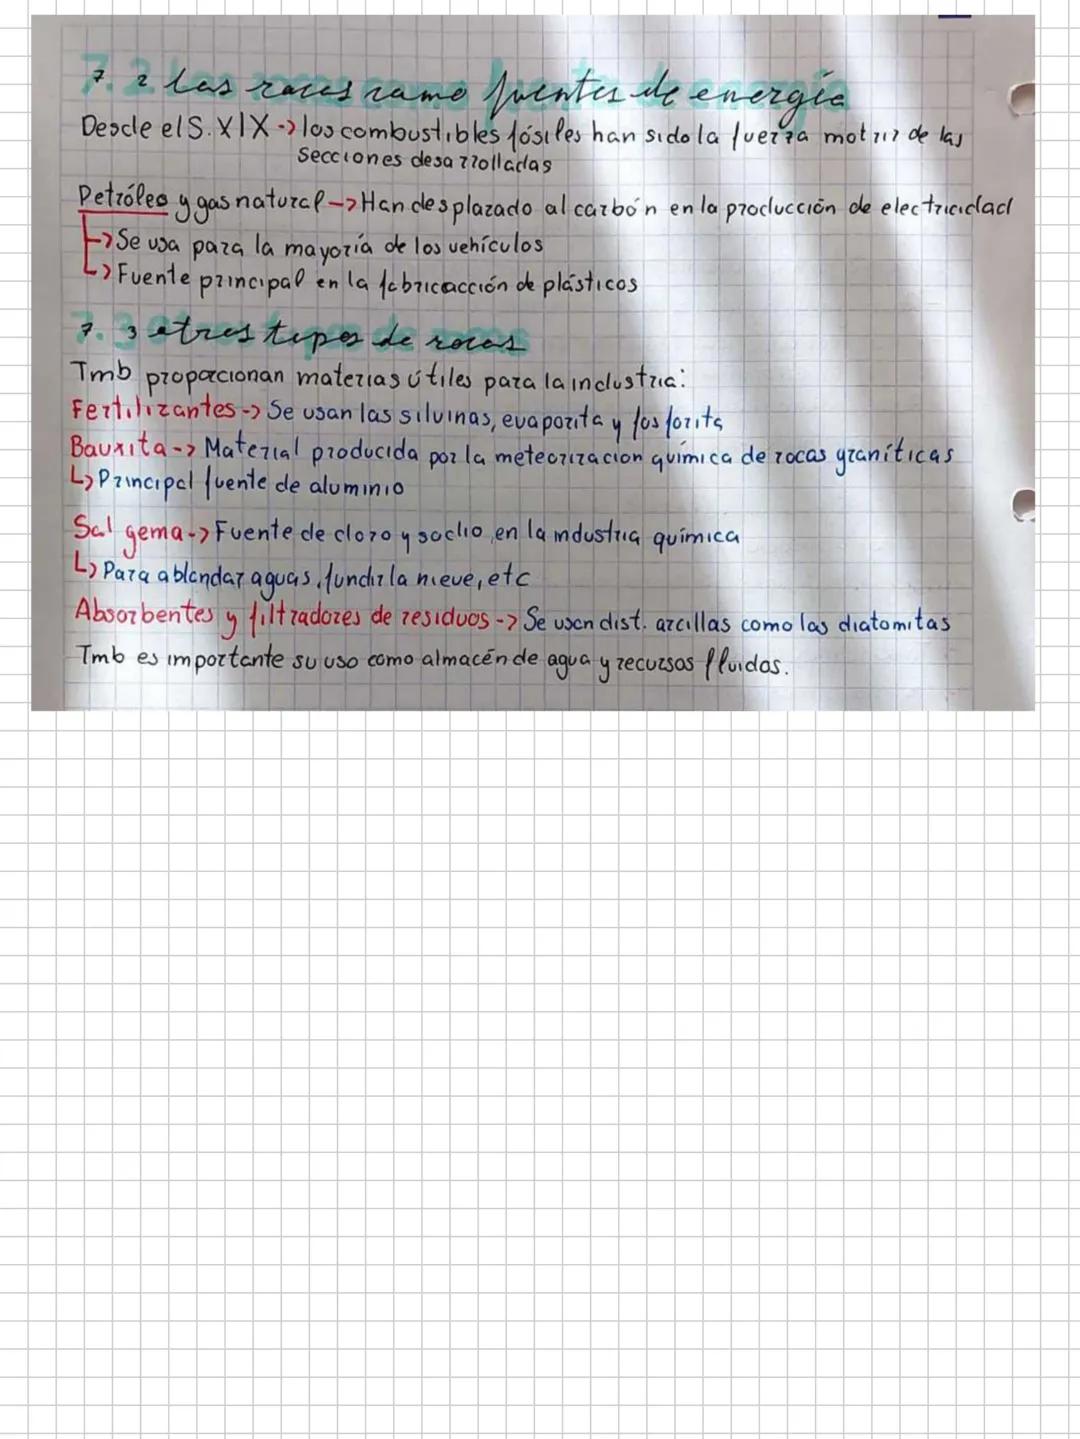 7.2 las rocas como fuentes de energía
Desde el S.XIX -> los combustibles fósiles han sido la fuerza motriz de las
secciones desarrolladas
Petróleo y gas natural -> Han desplazado al carbón en la producción de electricidad
-> Se usa para la mayoría de los vehículos
-> Fuente principal en la fabricacción de plásticos
7.3 otros tipos de rocas
Tmb proporcionan materias útiles para la industria:
Fertilizantes -> Se usan las silvinas, evaporita y fosforita
Bauxita -> Material producida por la meteorizacion química de rocas graníticas
↳ Principal fuente de aluminio
Sal gema -> Fuente de cloro y sodio en la industria química
↳ Para ablandar aguas, fundir la nieve, etc
Absorbentes y filtradores de residuos -> Se usan dist. arcillas como las diatomitas
Tmb es importante su uso como almacén de agua y recursos fluidos.